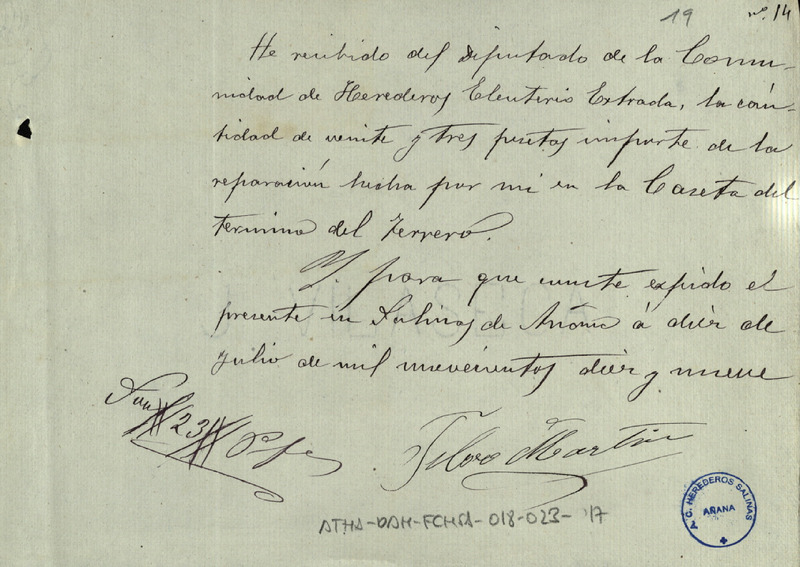 19
nº. 14
He recibido del Diputado de la Comu-
nidad de Herederos Eleuterio Extrada, la cán-
tidad de veinte y tres pesetas importe de la
reparación hecha por mi en la Caseta del
termino del Terrero.
Y. para que conste expido el
presente en Salinas de Añana á diéz de
Julio de mil nuevecientos diéz y nueve
Son # 23 # Ptas
Martin
A. C. HEREDEROS SALINAS
AÑANA
ATHA-DAH-FCHSA-018-023-17